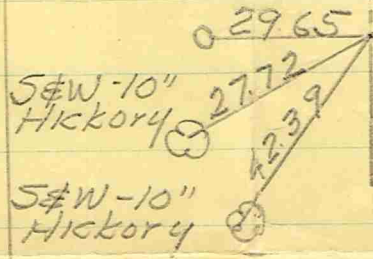 29.65
S&W-10"
Hickory
27.72
42.39
S&W-10"
Hickory